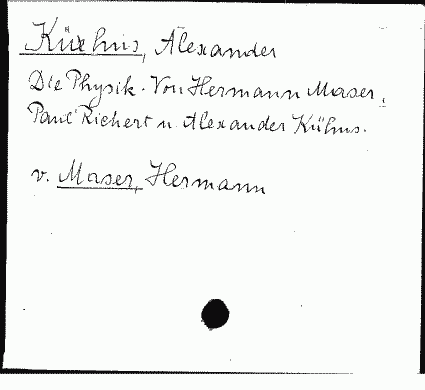 Kühns, Alexander
Die Physik. Von Hermann Maser,
Paul Richert u. Alexander Kühns.
v. Maser, Hermann